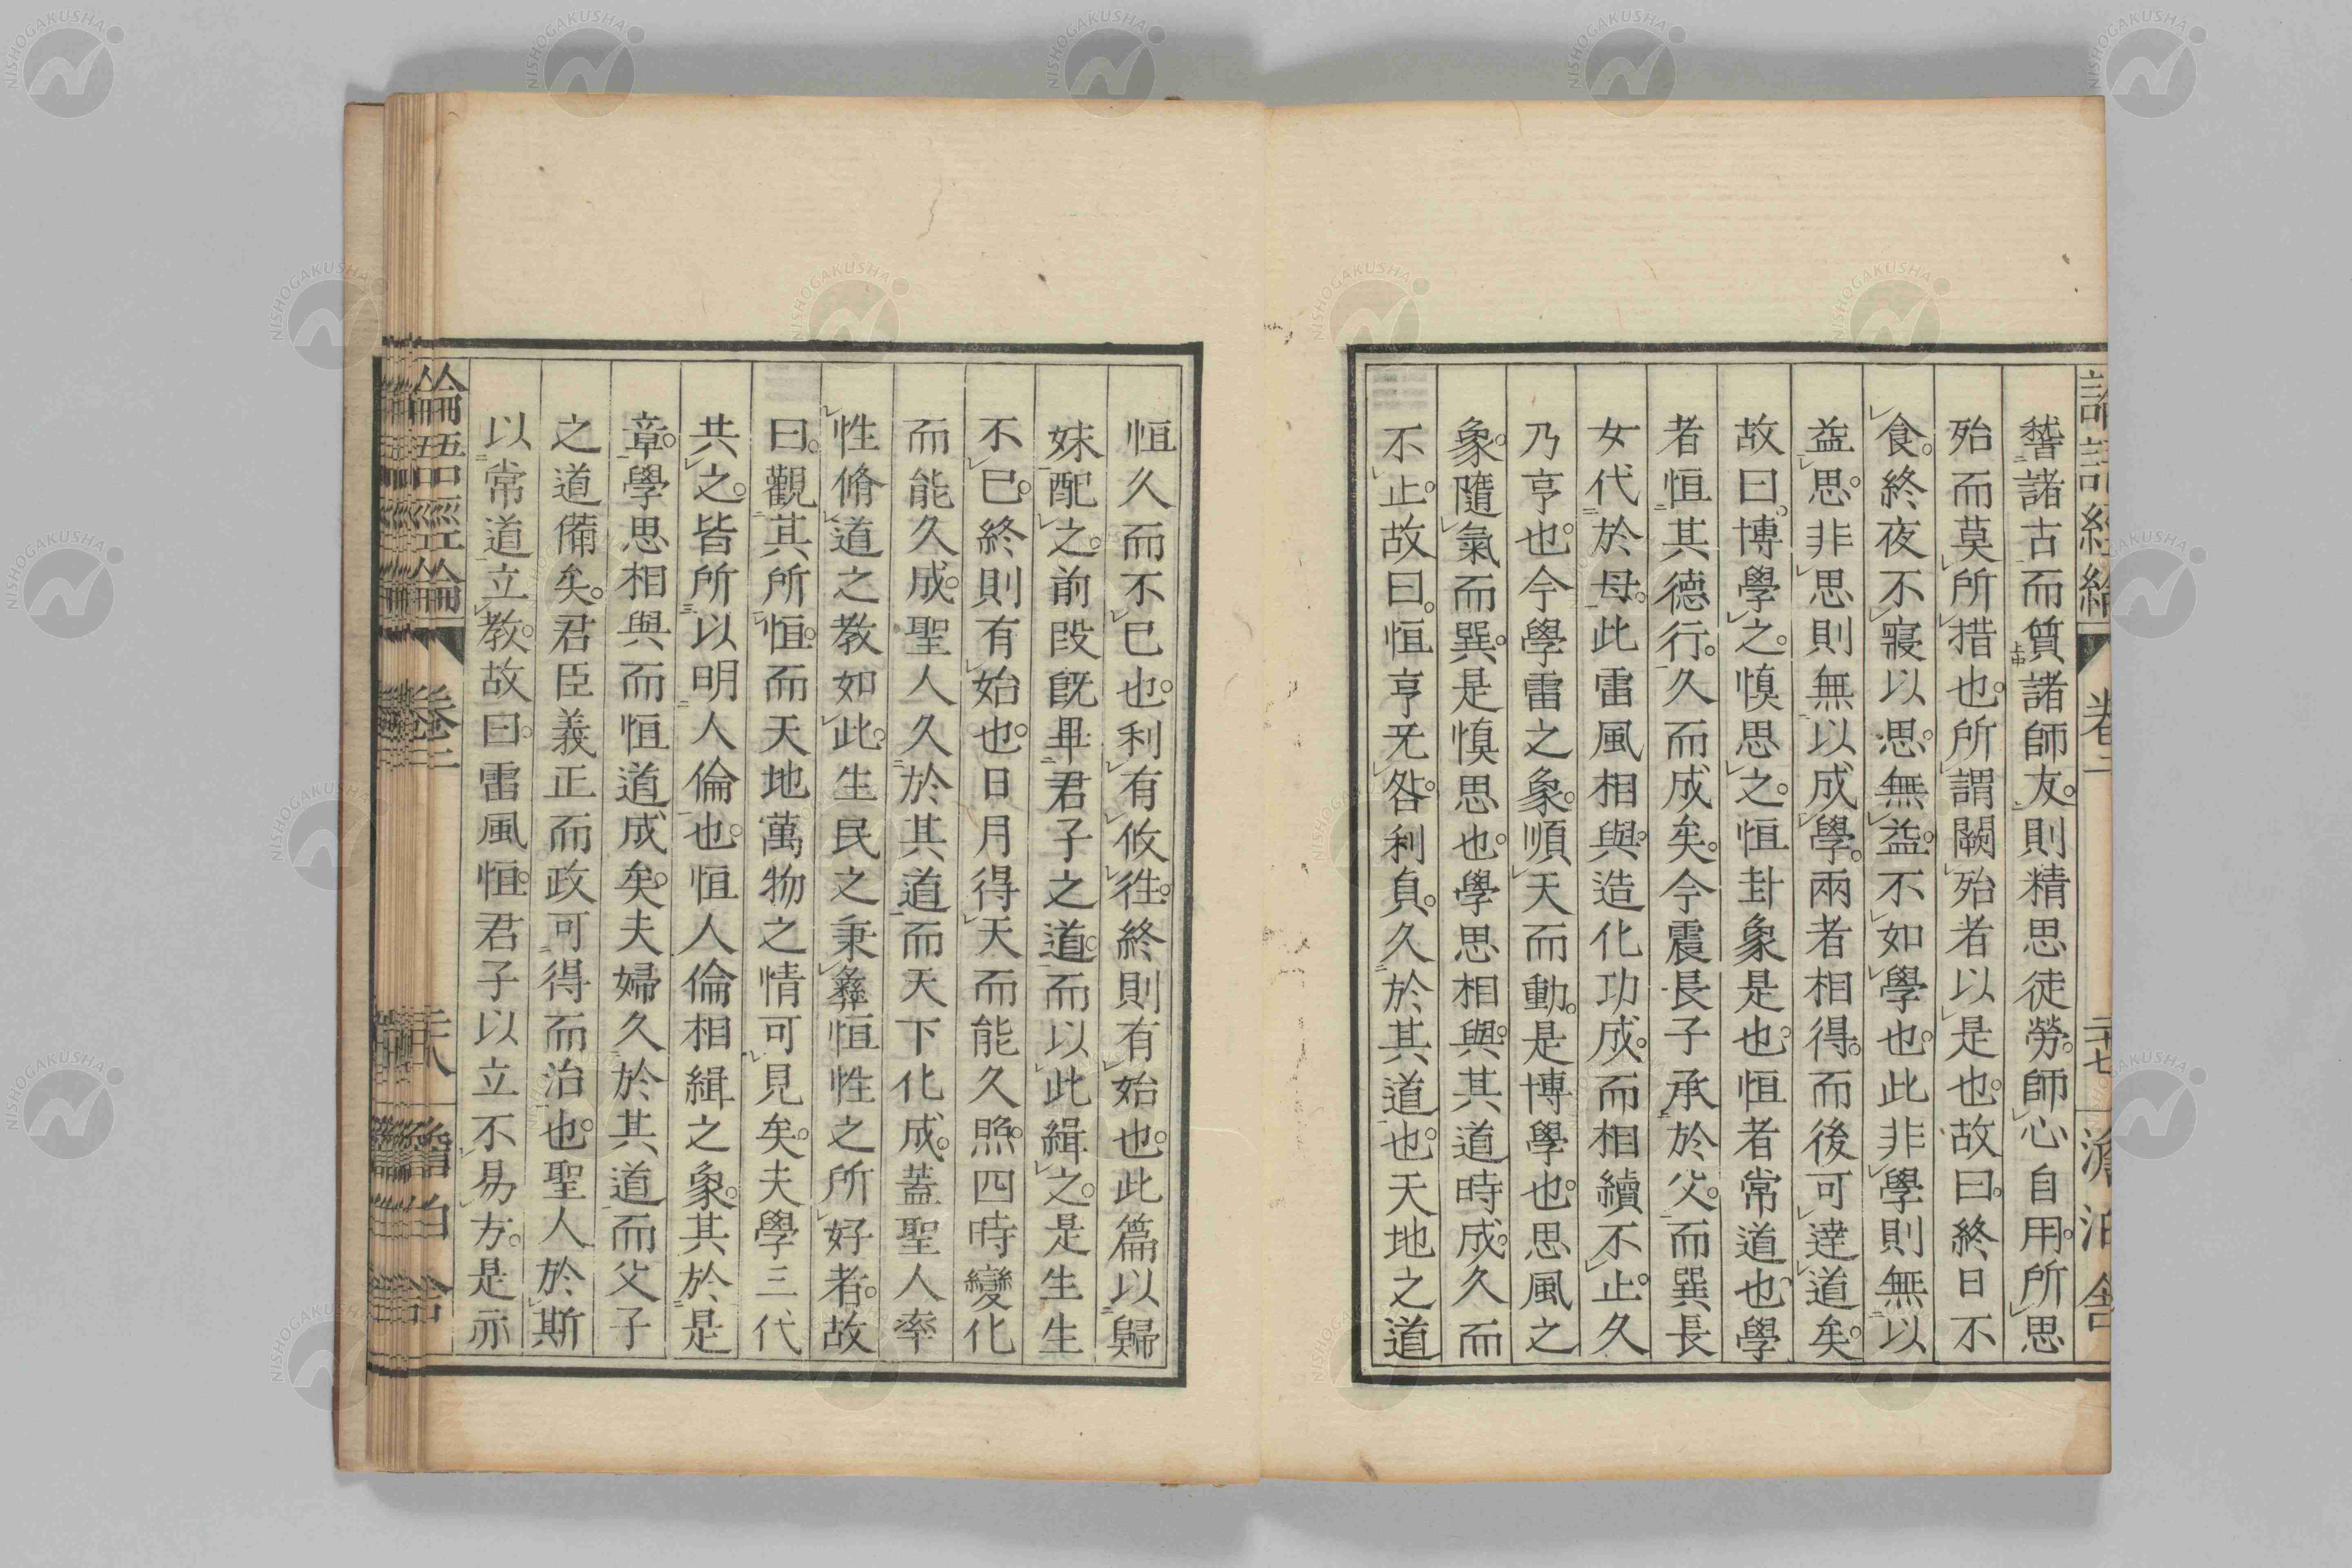 稽諸古而質諸師友。則精思徒勞。師心自用。所思
殆而莫所措也。所謂闕殆者以是也。故曰。終日不
食。終夜不寢以思。無益。不如學也。此非學則無以
益思。非思則無以成學。兩者相得。而後可達道矣。
故曰。博學之。愼思之。恒卦象是也。恒者常道也。學
者恒其德行。久而成矣。今震長子承於父。而巽長
女代於母。此雷風相與。造化功成。而相續不止。久
乃亨也。今學雷之象。順天而動。是博學也。思風之
象。隨氣而巽。是愼思也。學思相與。其道時成。久而
不止。故曰。恒亨旡咎。利貞。久於其道也。天地之道
恒久而不已也。利有攸往。終則有始也。此篇以歸
妹配之。前段既畢君子之道。而以此緝之。是生生
不已。終則有始也。日月得天而能久照。四時變化
而能久成。聖人久於其道而天下化成。蓋聖人率
性脩道之教如此。生民之秉彝恒性之所好者。故
曰。觀其所恒。而天地萬物之情可見矣。夫學三代
共之。皆所以明人倫也。恒人倫相緝之象。其於是
章。學思相與而恒道成矣。夫婦久於其道而父子
之道備矣。君臣義正而政可得而治也。聖人於斯
以常道立教。故曰。雷風恒。君子以立不易方。是亦
論語經綸
卷二